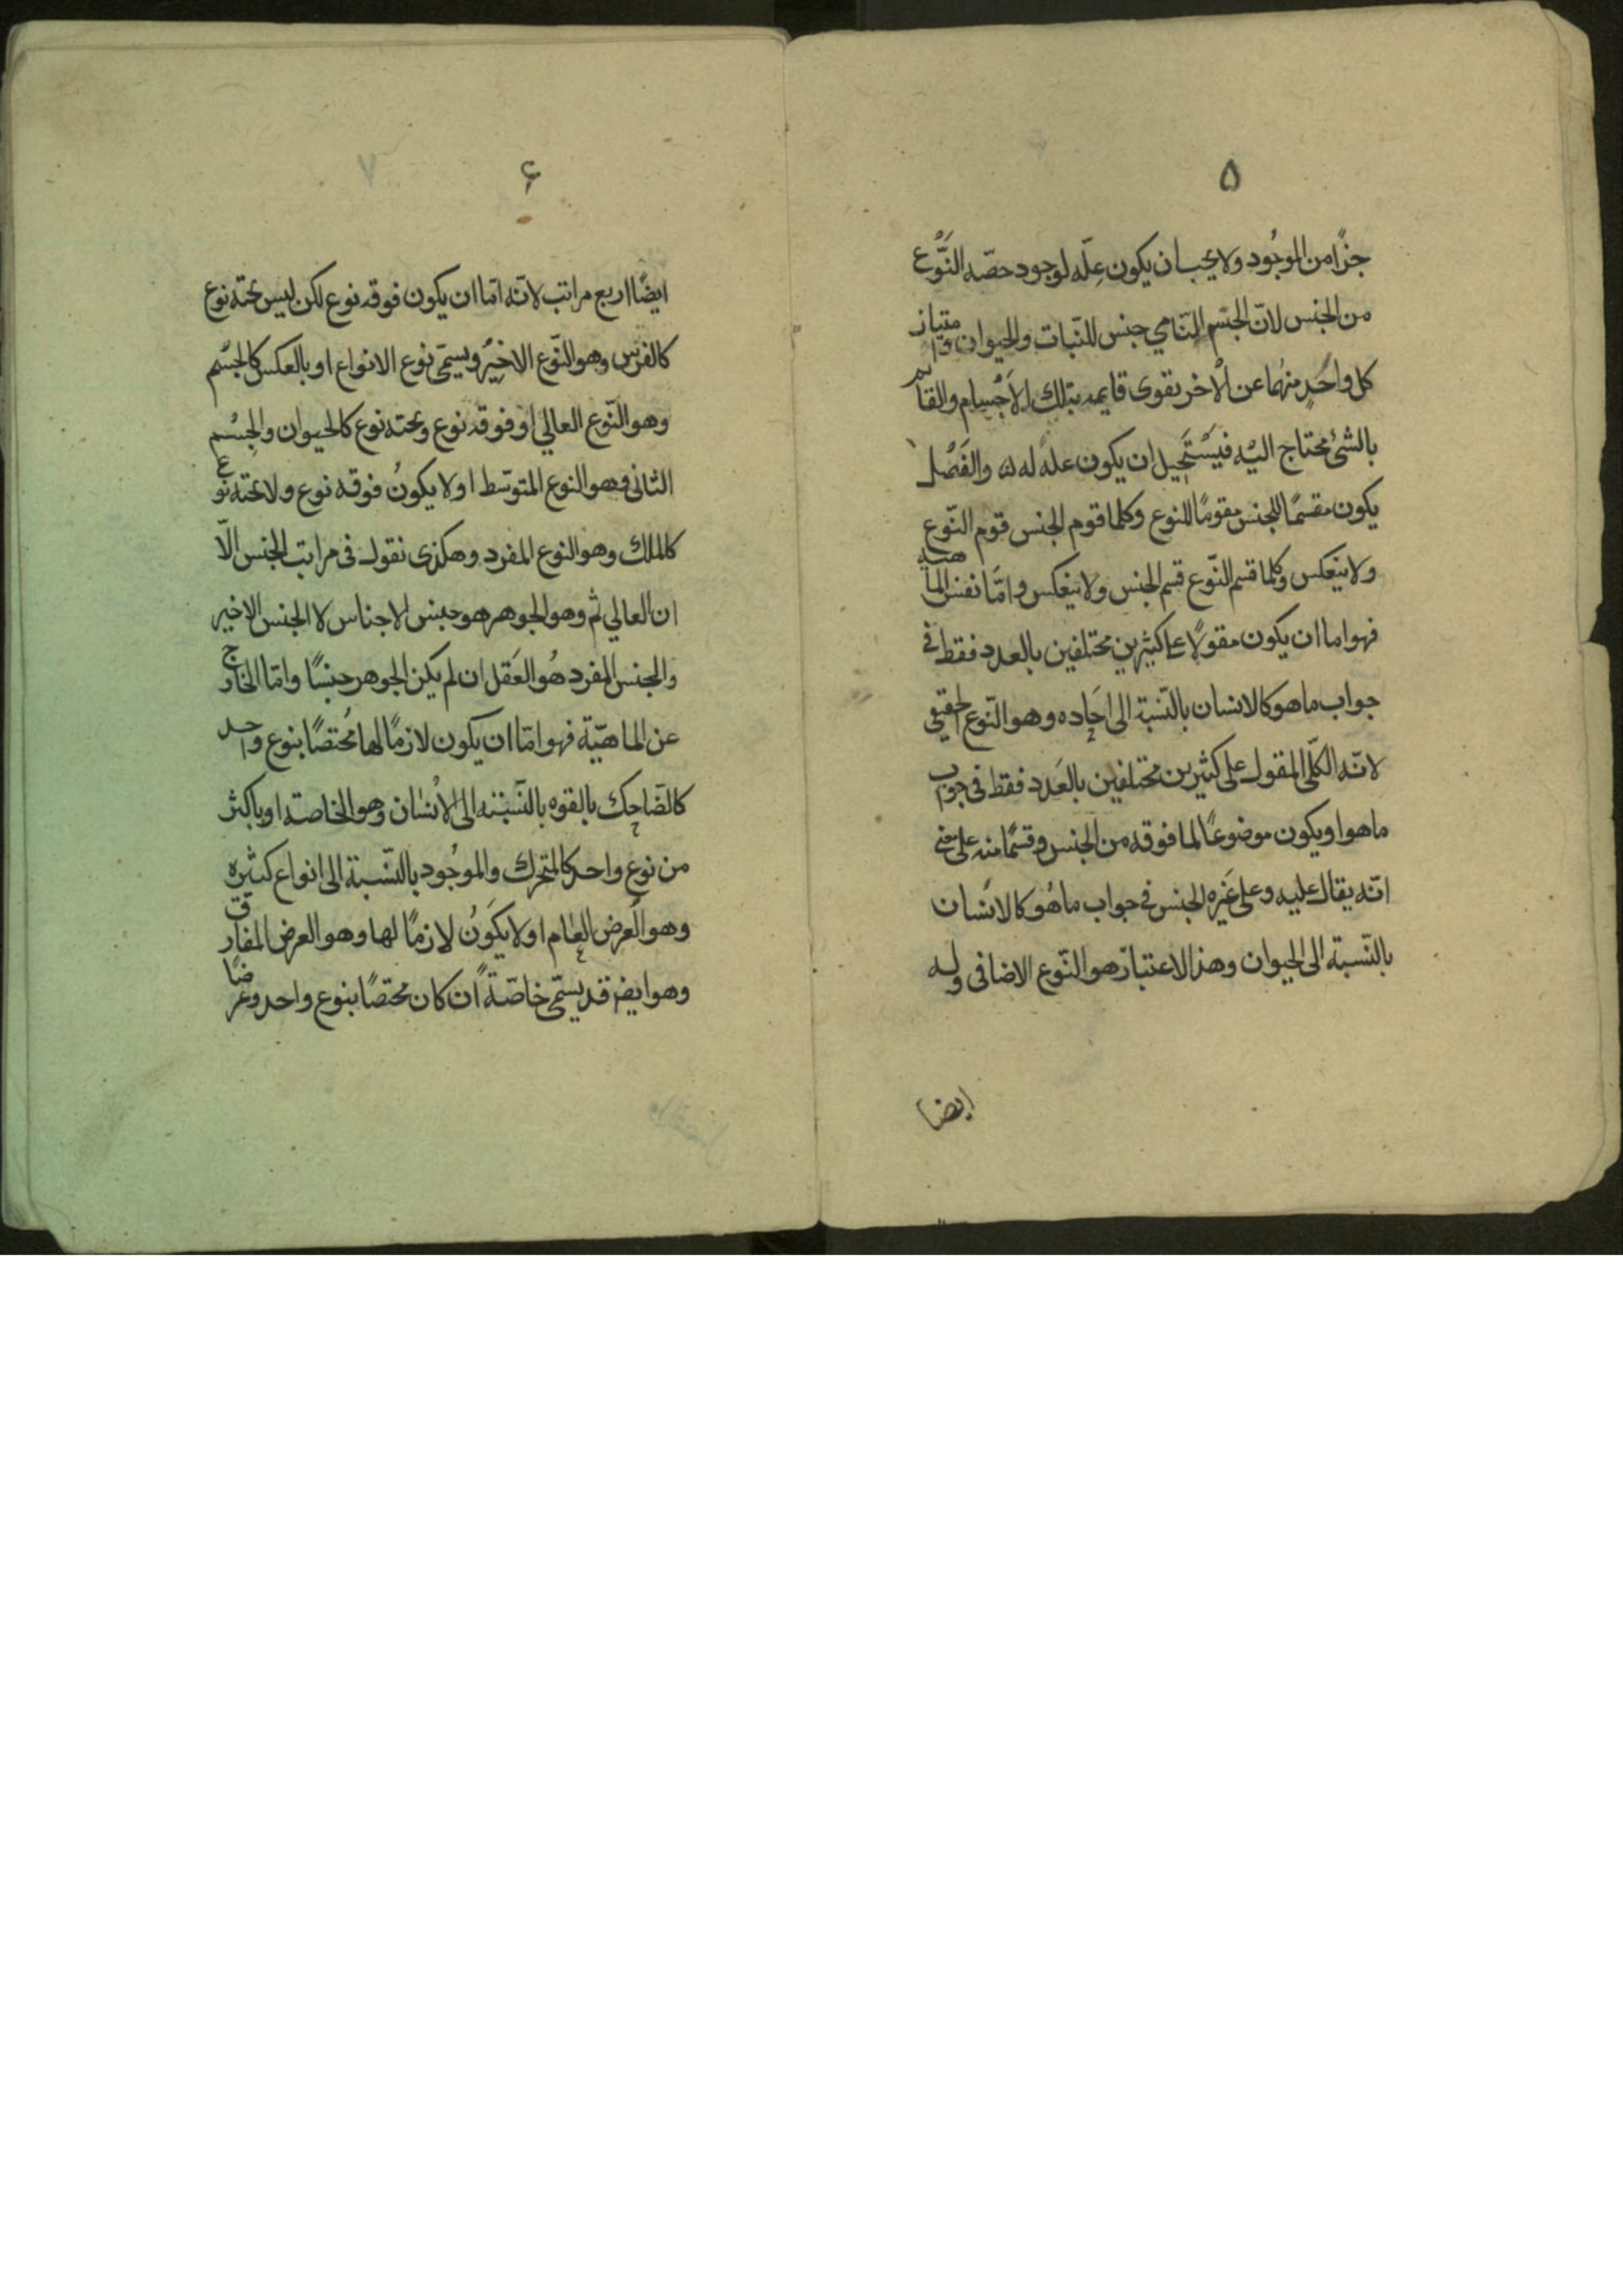 ۵
جزًا من الموجُود ولا يجب ان يكون عِلّه لوجود حصّه النَّوْع
من الجنس لانّ الجسْم النّامي جنس للنّبات والحيوان وامتياز
كل واحَدٍ منهُما عن الْاخر بقوى قايمه بتلك الاَجْسام والقايم
بالشئ محتاج اليْه فيَسْتَحِيل ان يكون علهً له له والفَصْل
يكون مقسمًا للجنس مقومًا للنوع وكلما قوم الجنس قوم النّوع
ولا ينعَكس وكلما قسم النّوع قسم الجنس ولا ينعكس وامَّا نفس الماهيه
فهو اما ان يكون مقولًا على كثيرين مختلفين بالعدد فقط في
جواب ما هو كالانسان بالنّسبة الى احَاده وهو النّوع الحقيقي
لانّه الكلّى المقول على كثيرين مختلفين بالعَدد فقط فى جواب
ما هو او يكون موضوعًا لما فوقه من الجنس وقسمًا منه على معنى
انّه يقال عليه وعلى غَيره الجنس فى جواب ما هُو كالانسَان
بالنّسبة الى الحيوان وهذا الاعتبار هو النّوع الاضافى وله
ايضا
۶
ايضًا اربع مراتب لانّه امّا ان يكون فوقه نوع لكن ليس تحته نوع
كالفرس وهو النّوع الاخيْر ويسمّى نوع الانواع او بالعكس كالجسْم
وهو النّوع العالي او فوقه نوع وتحته نوع كالحيوان والجِسْم
الثانى وهو النوع المتوسّط او لا يكونُ فوقه نوع ولا تحته نوع
كالملك وهو النوع المفرد وهكذى نقول فى مراتب الجنس الّا
ان العالي ثم وهو الجوهر هو جنس لاجناس لا الجنس الاخير
والجنس المفرد هُو العَقل ان لم يكن الجوهر جنسًا وامّا الخارج
عن الماهيّة فهو امّا ان يكون لازمًا لها مُختصًا بنوع واحد
كالضّاحِك بالقوه بالنّسبته الى الْانسْان وهو الخاصة او باكثر
من نوع واحد كالمتحرك والموجُود بالنّسبة الى انواع كثيْره
وهو الْعرض العام او لا يكَونُ لازمًا لها وهو العرض المفارق
وهو ايضا قد يسمّى خاصّةً ان كان مختصًا بنوع واحد وعرضًا